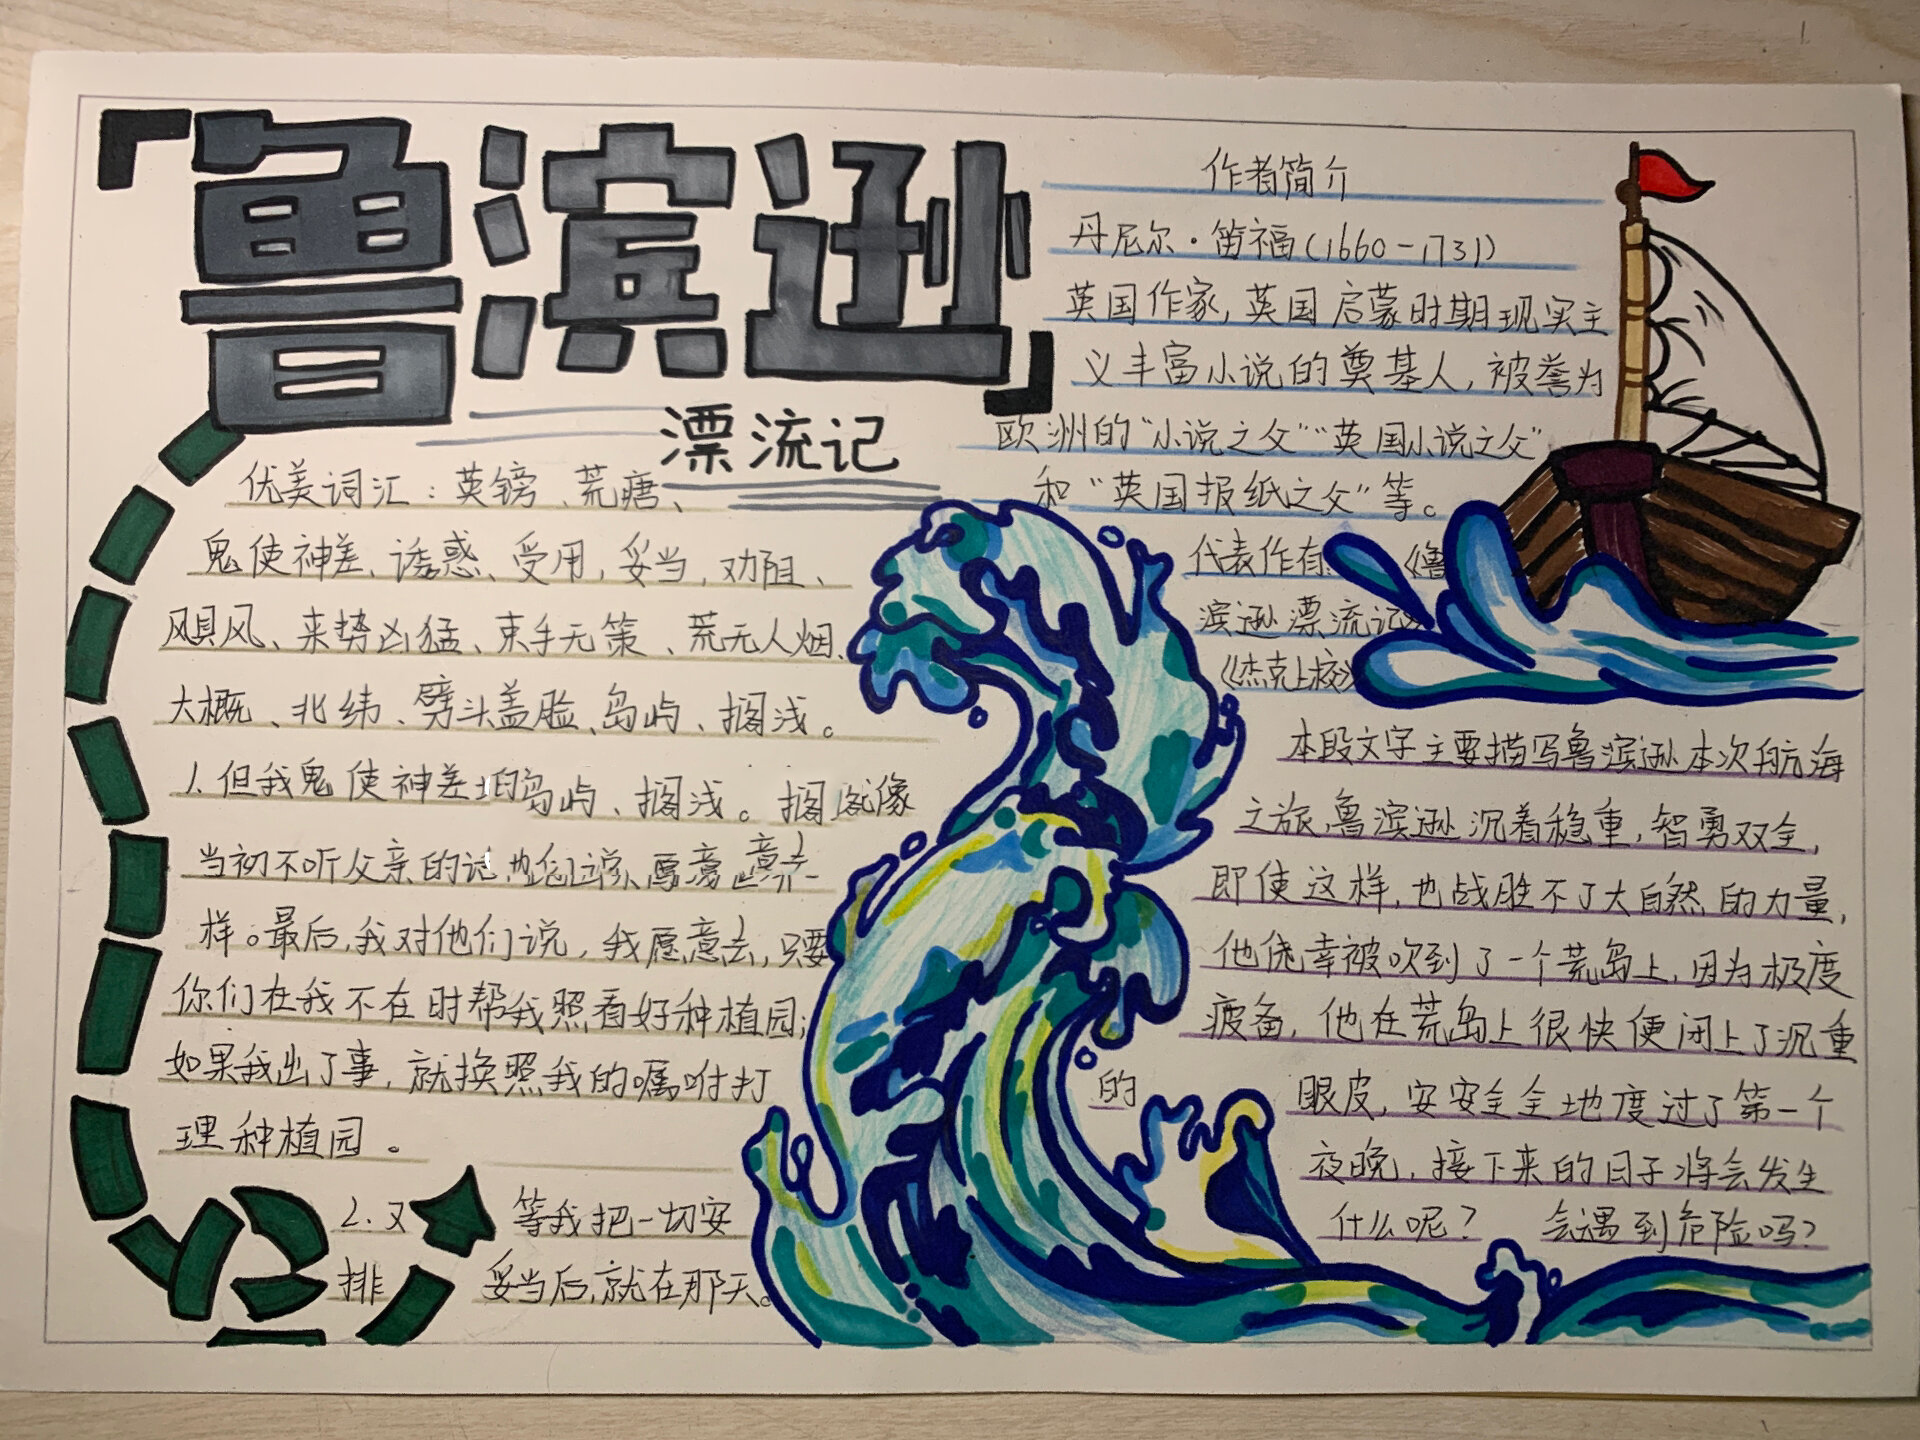 「鲁滨逊」
漂流记
优美词汇：英镑、荒瘩、
鬼使神差、诱惑、受用，妥当，劝阻、
飓风、来势凶猛、束手无策、荒无人烟、
大概、北纬、劈头盖脸、岛屿、搁浅。
1.但我鬼使神差 岛屿、搁浅。搁 像
当初不听父亲的 意去一
样。最后，我对他们说，我愿意去，只要
你们在我不在时帮我照看好种植园；
如果我出了事，就换照我的嘱咐打
理种植园。
2.又 等我把一切安
排 妥当后，就在那天。
作者简介
丹尼尔·笛福(1660-1731)
英国作家，英国启蒙时期现实主
义丰富小说的奠基人，被誉为
欧洲的“小说之父”“英国小说之父”
和“英国报纸之父”等。
代表作有 《鲁
滨逊漂流记》
《杰克上校》
本段文字主要描写鲁滨逊本次航海
之旅，鲁滨逊沉着稳重，智勇双全，
即使这样，也战胜不了大自然的力量，
他侥幸被吹到了一个荒岛上，因为极度
疲备，他在荒岛上很快便闭上了沉重
的 眼皮，安安全全地度过了第一个
夜晚，接下来的日子将会发生
什么呢？ 会遇到危险吗？